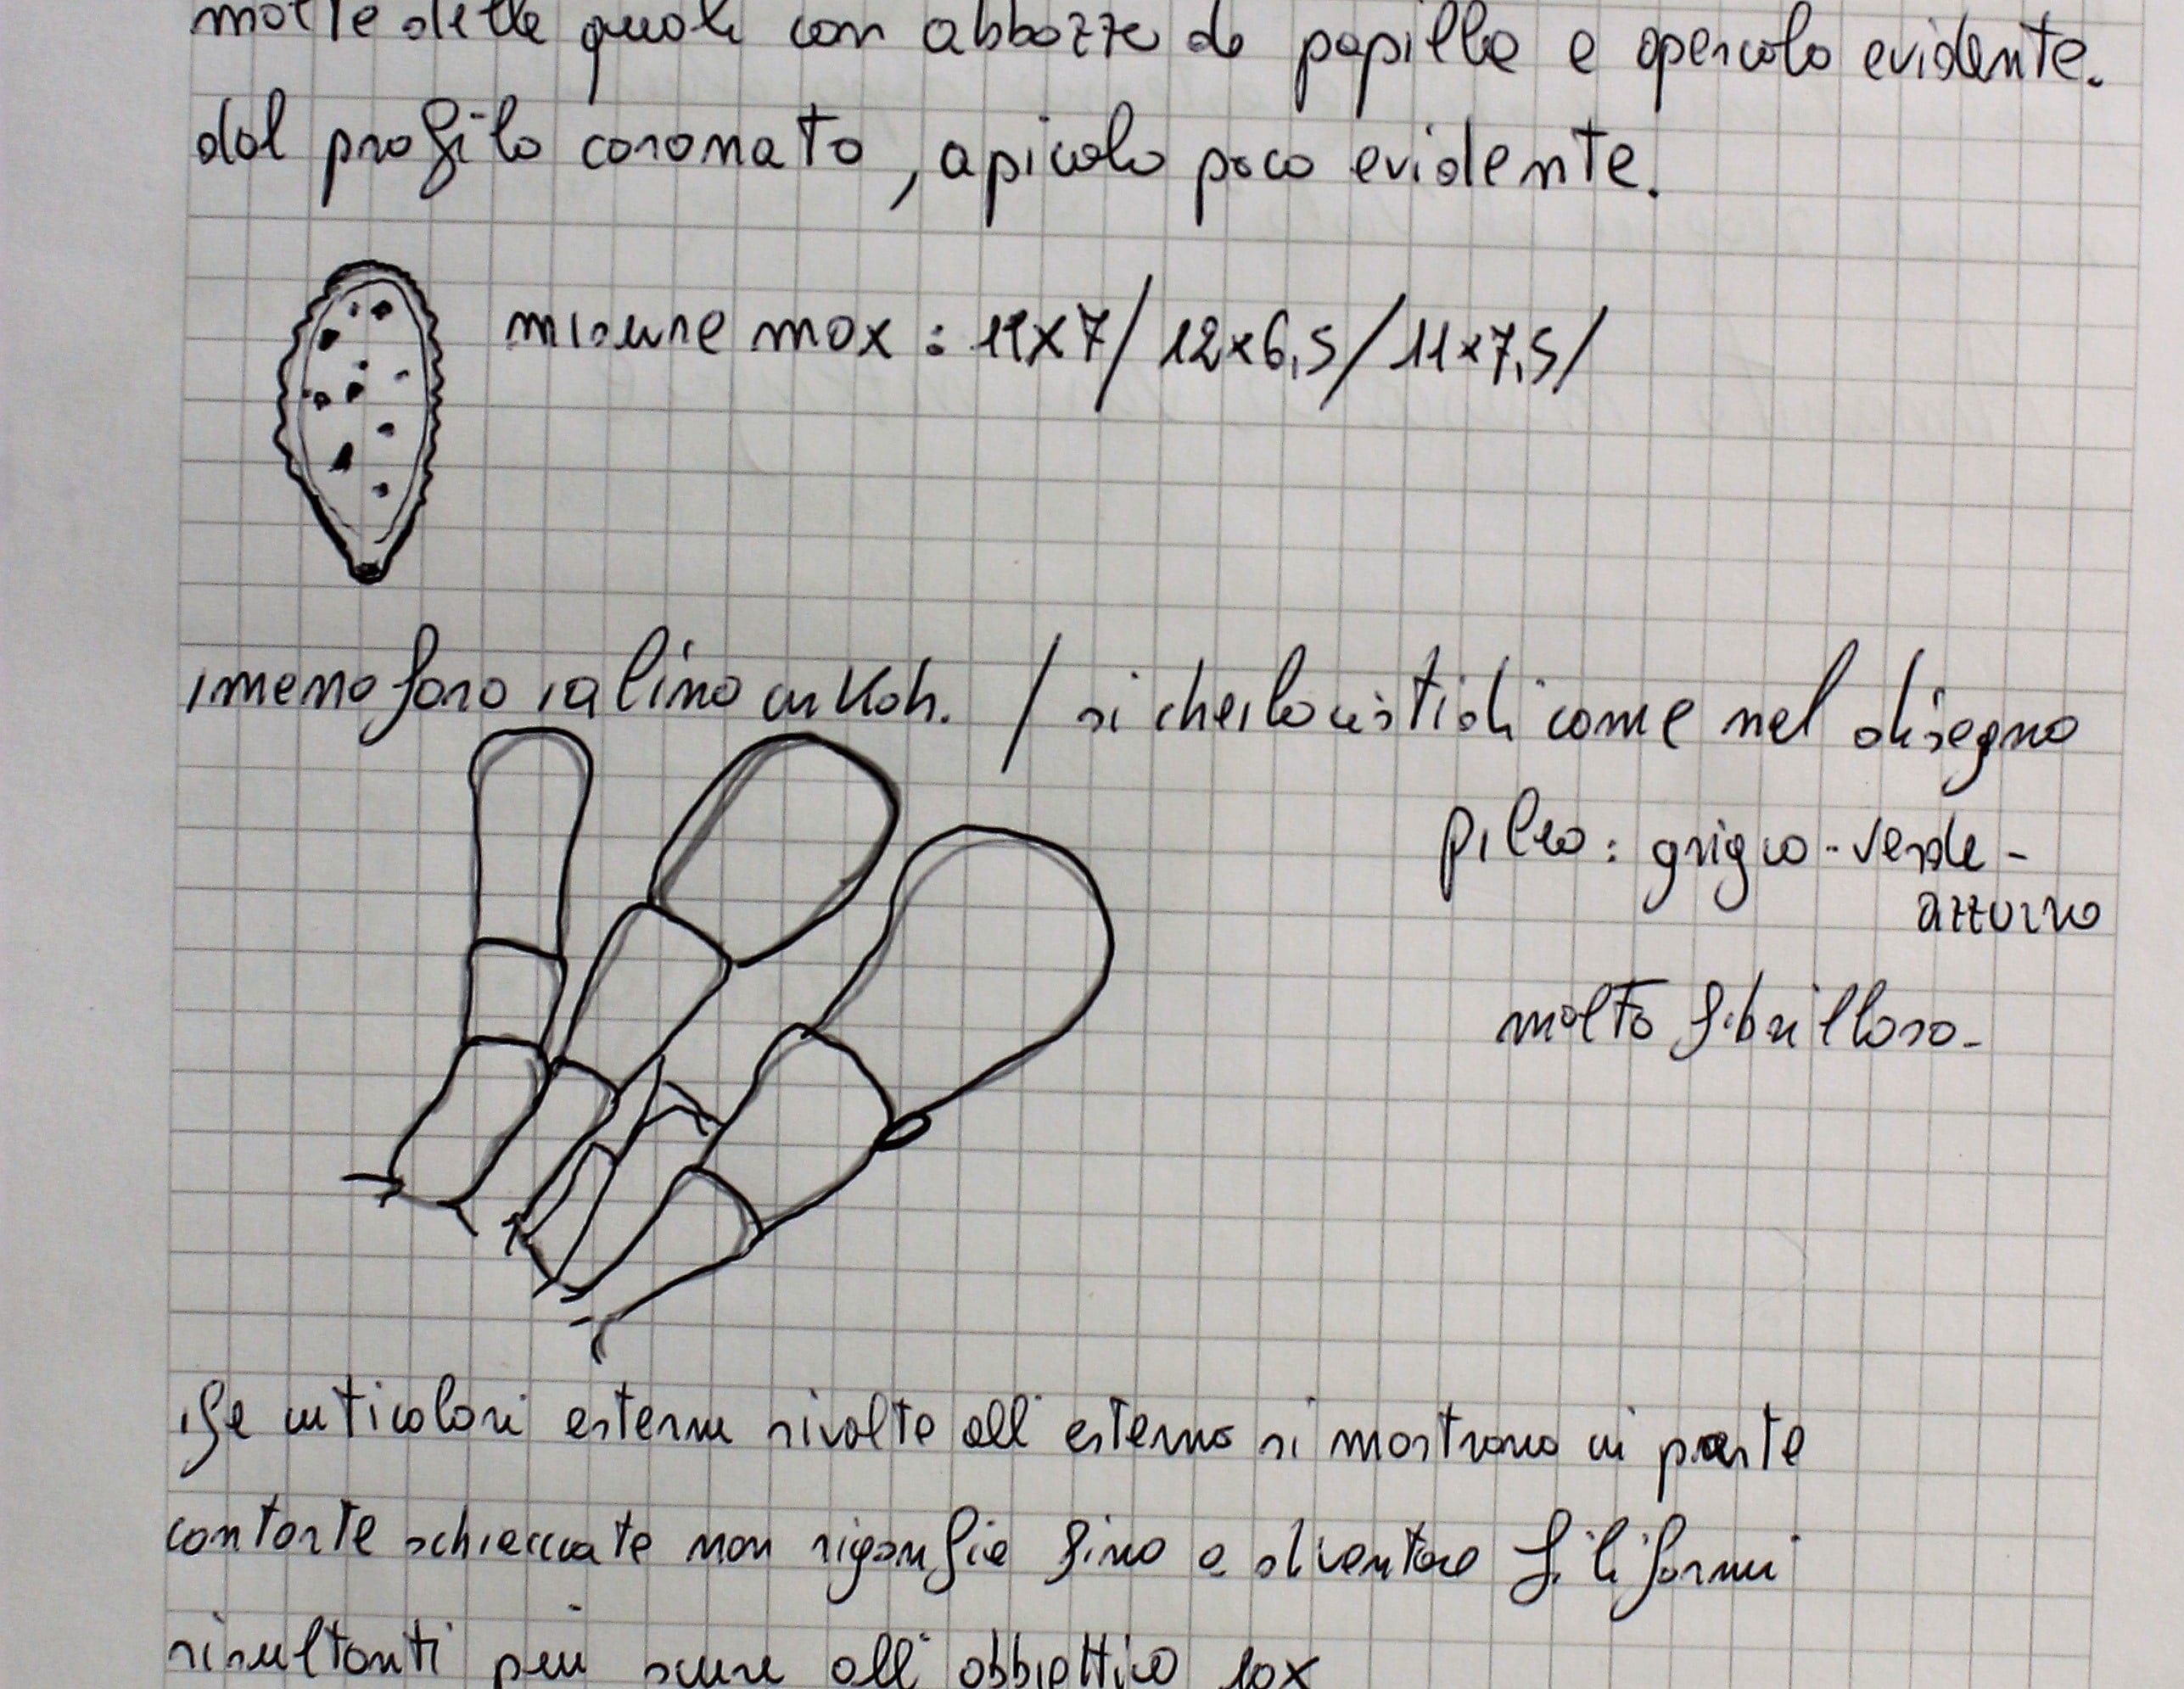 molte delle quali con abbozzo di papilla e opercolo evidente.
dal profilo coronato, apicolo poco evidente.
misure max: 11x7/ 12x6,5/ 11x7,5/
imenoforo ialino in Koh. / si cheilocistidi come nel disegno
pileo: grigio-verde-
azzurro
molto fibrilloso-
Ife cuticolari esterne rivolte all'esterno si mostrano in parte
contorte schiacciate non rigonfie fino a diventare filiformi
risultanti più scure all'obbiettivo 10x